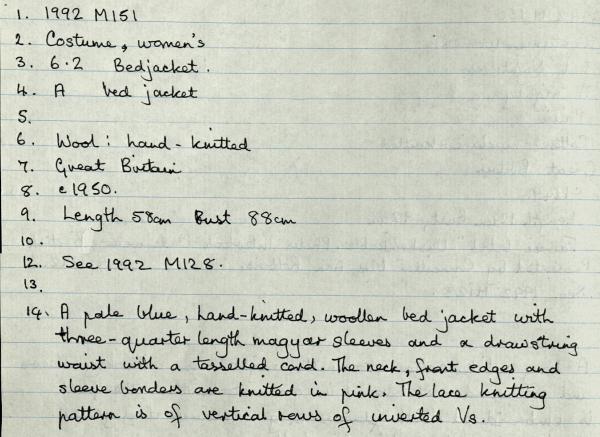 1. 1992 M151
2. Costume, women's
3. 6.2 Bedjacket.
4. A bed jacket
5.
6. Wool: hand-knitted
7. Great Britain
8. c1950.
9. Length 58cm Bust 88cm
10.
12. See 1992 M128.
13.
14. A pale blue, hand-knitted, woollen bed jacket with
three-quarter length magyar sleeves and a drawstring
waist with a tasselled cord. The neck, front edges and
sleeve borders are knitted in pink. The lace knitting
pattern is of vertical rows of inverted Vs.